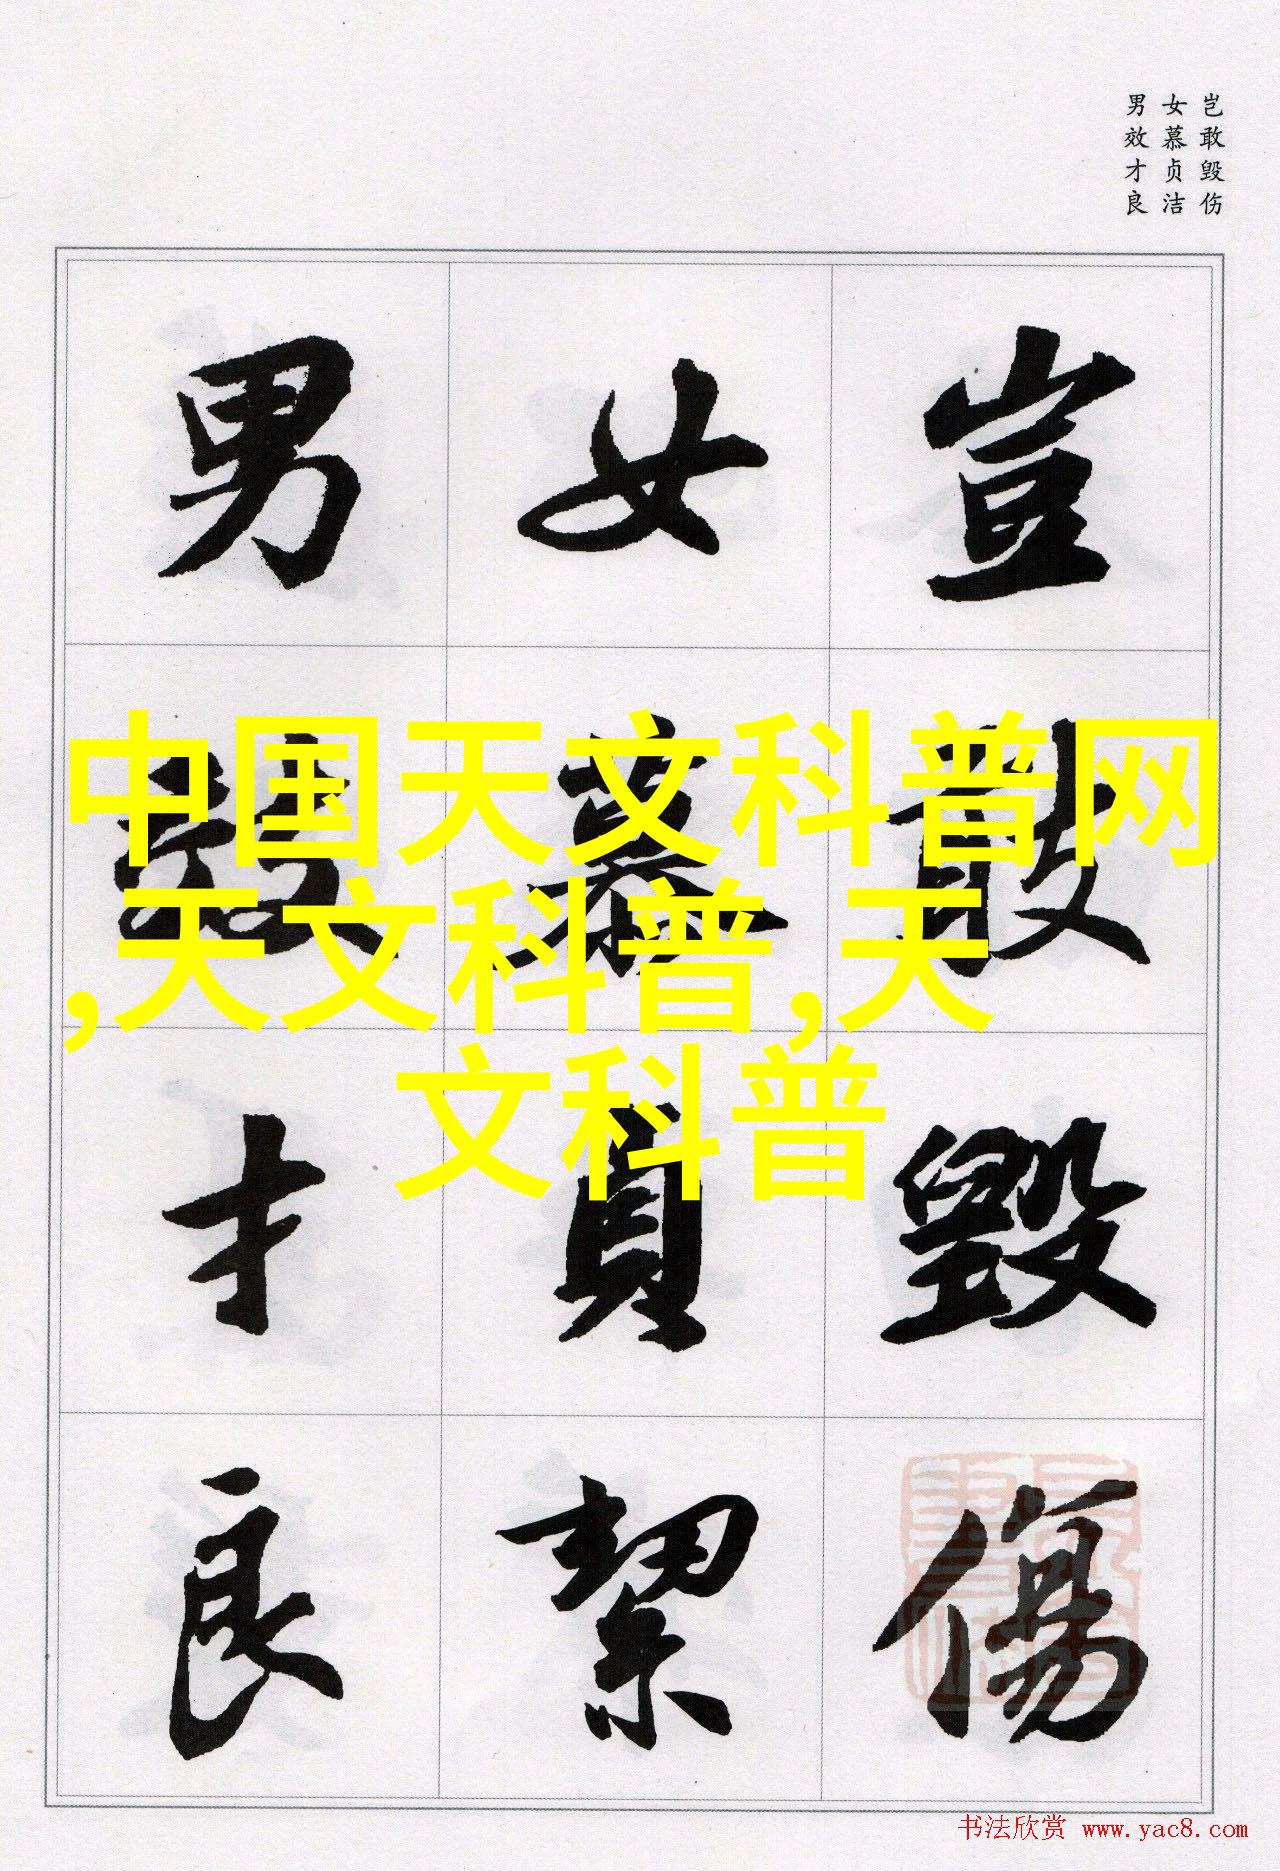 岂敢毁伤
女慕贞洁
男效才良
豈敢毀傷
女慕貞絜
男效才良
中国天文科普网
,天文科普,天
文科普
书法欣赏 www.yac8.com